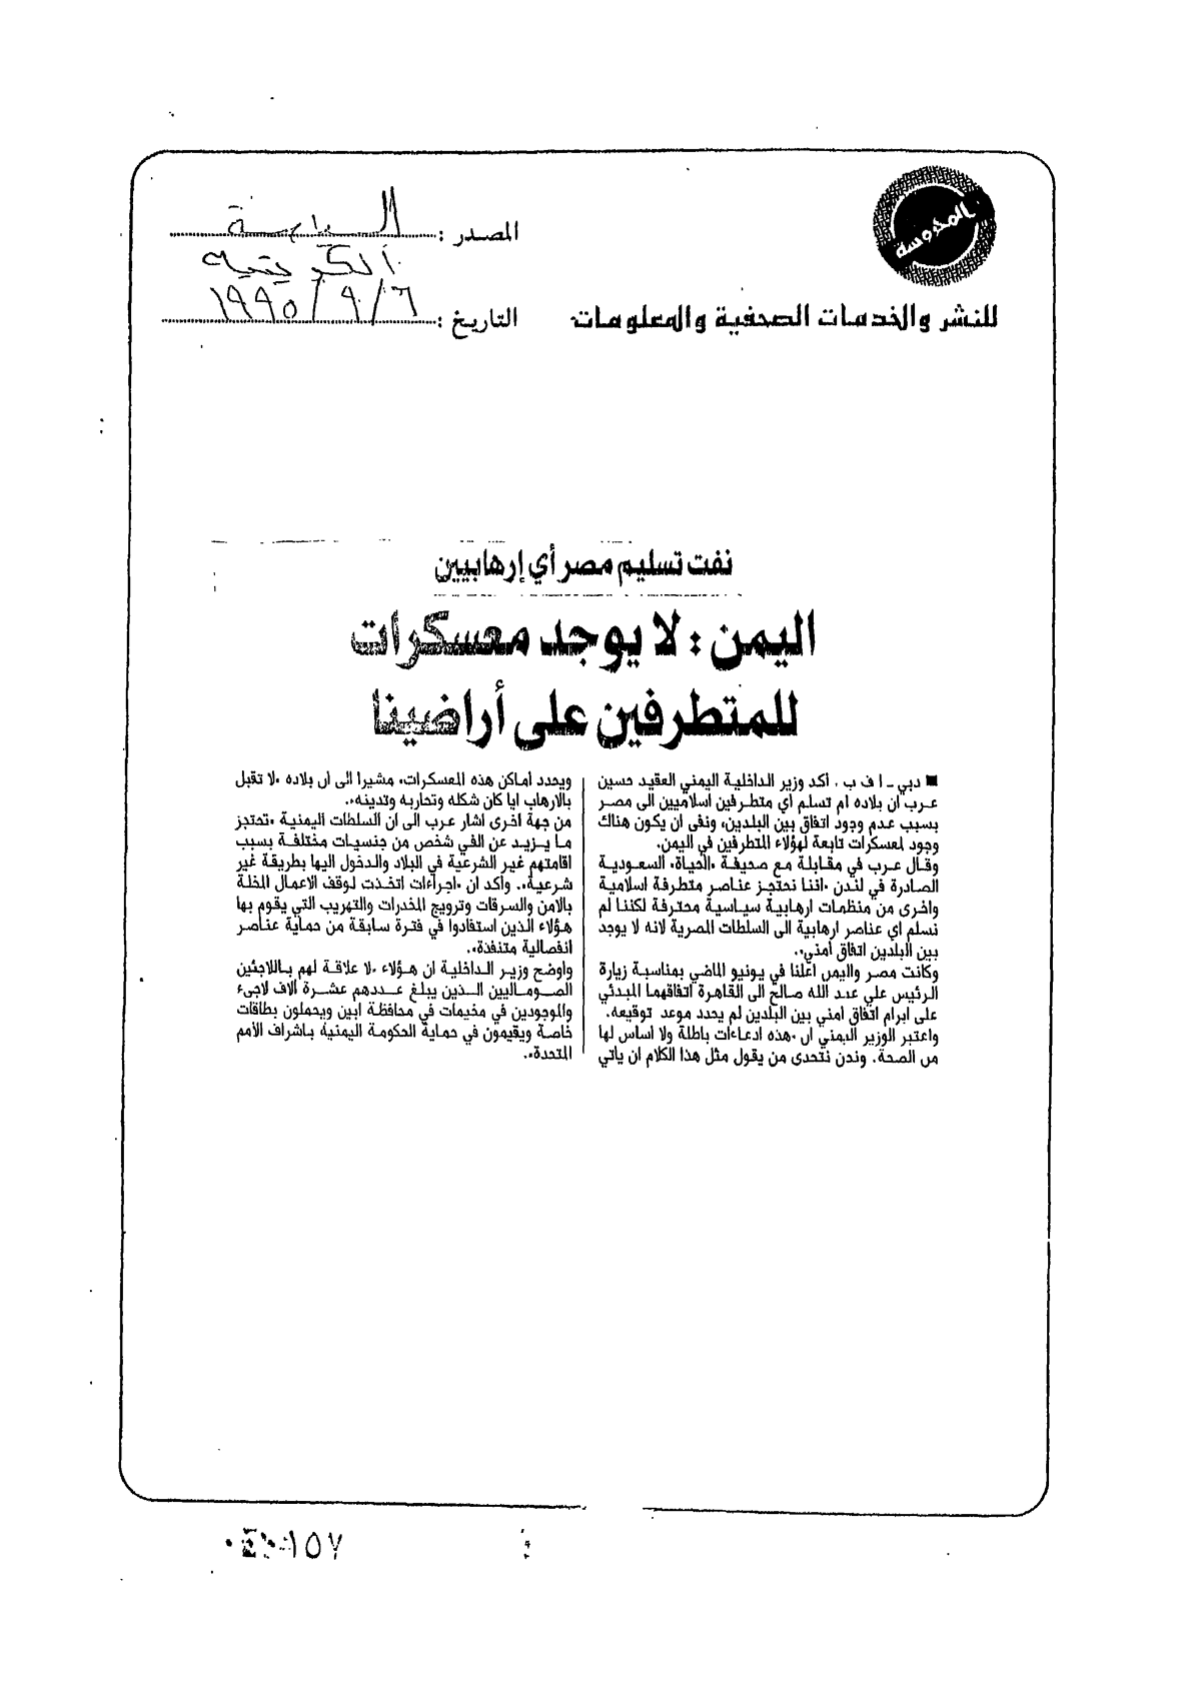 المحروسة
للنشر والخدمات الصحفية والمعلومات
المصدر : السياسة
الكويتية
التاريخ : ٦ / ٩ / ١٩٩٥
نفت تسليم مصر أي إرهابيين
اليمن : لا يوجد معسكرات
للمتطرفين على أراضينا
■ دبي ـ ا ف ب . أكد وزير الداخلية اليمني العقيد حسين
عرب ان بلاده لم تسلم اي متطرفين اسلاميين الى مصر
بسبب عدم وجود اتفاق بين البلدين، ونفى ان يكون هناك
وجود لمعسكرات تابعة لهؤلاء المتطرفين في اليمن.
وقال عرب في مقابلة مع صحيفة «الحياة» السعودية
الصادرة في لندن «اننا نحتجز عناصر متطرفة اسلامية
واخرى من منظمات ارهابية سياسية محترفة لكننا لم
نسلم اي عناصر ارهابية الى السلطات المصرية لانه لا يوجد
بين البلدين اتفاق أمني».
وكانت مصر واليمن اعلنا في يونيو الماضي بمناسبة زيارة
الرئيس علي عبد الله صالح الى القاهرة اتفاقهما المبدئي
على ابرام اتفاق امني بين البلدين لم يحدد موعد توقيعه.
واعتبر الوزير اليمني ان «هذه ادعاءات باطلة ولا اساس لها
من الصحة. ونحن نتحدى من يقول مثل هذا الكلام ان ياتي
ويحدد اماكن هذه المعسكرات» مشيرا الى ان بلاده «لا تقبل
بالارهاب ايا كان شكله وتحاربه وتدينه».
من جهة اخرى اشار عرب الى ان السلطات اليمنية «تحتجز
ما يزيد عن الفي شخص من جنسيات مختلفة بسبب
اقامتهم غير الشرعية في البلاد والدخول اليها بطريقة غير
شرعية». وأكد ان «اجراءات اتخذت لوقف الاعمال المخلة
بالامن والسرقات وترويج المخدرات والتهريب التي يقوم بها
هؤلاء الذين استفادوا في فترة سابقة من حماية عناصر
انفصالية متنفذة».
واوضح وزير الداخلية ان هؤلاء «لا علاقة لهم باللاجئين
الصوماليين الذين يبلغ عددهم عشرة الاف لاجىء
والموجودين في مخيمات في محافظة ابين ويحملون بطاقات
خاصة ويقيمون في حماية الحكومة اليمنية باشراف الأمم
المتحدة».